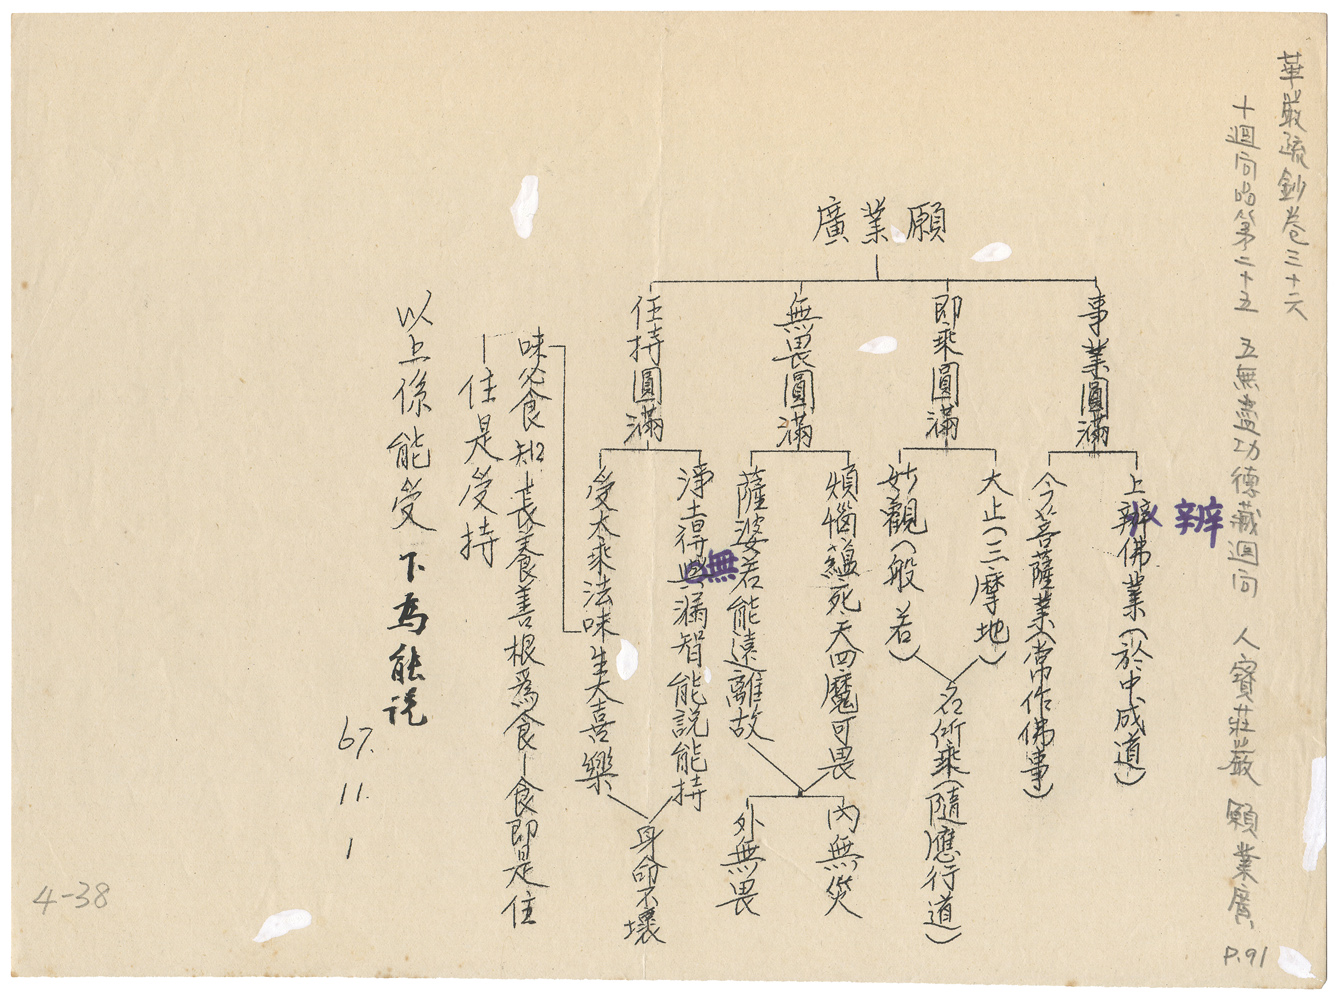 華嚴疏鈔卷三十六
十迴向品第二十五 五無盡功德藏迴向 人寶莊嚴 願業廣
P.91
廣業願
事業圓滿
上辦佛業(於中成道)
辦
今菩薩業(常作佛事)
即乘圓滿
大止(三摩地)
妙觀(般若)
名所乘(隨應行道)
無畏圓滿
煩惱蘊死天四魔可畏
薩婆若能遠離故
內無災
外無畏
任持圓滿
淨土得無漏智能說能持
無
受大乘法味生大喜樂
身命不壞
味必食知長養善根為食-食即是住
住是受持
以上係能受 下為能說
67.
11.
1
4-38